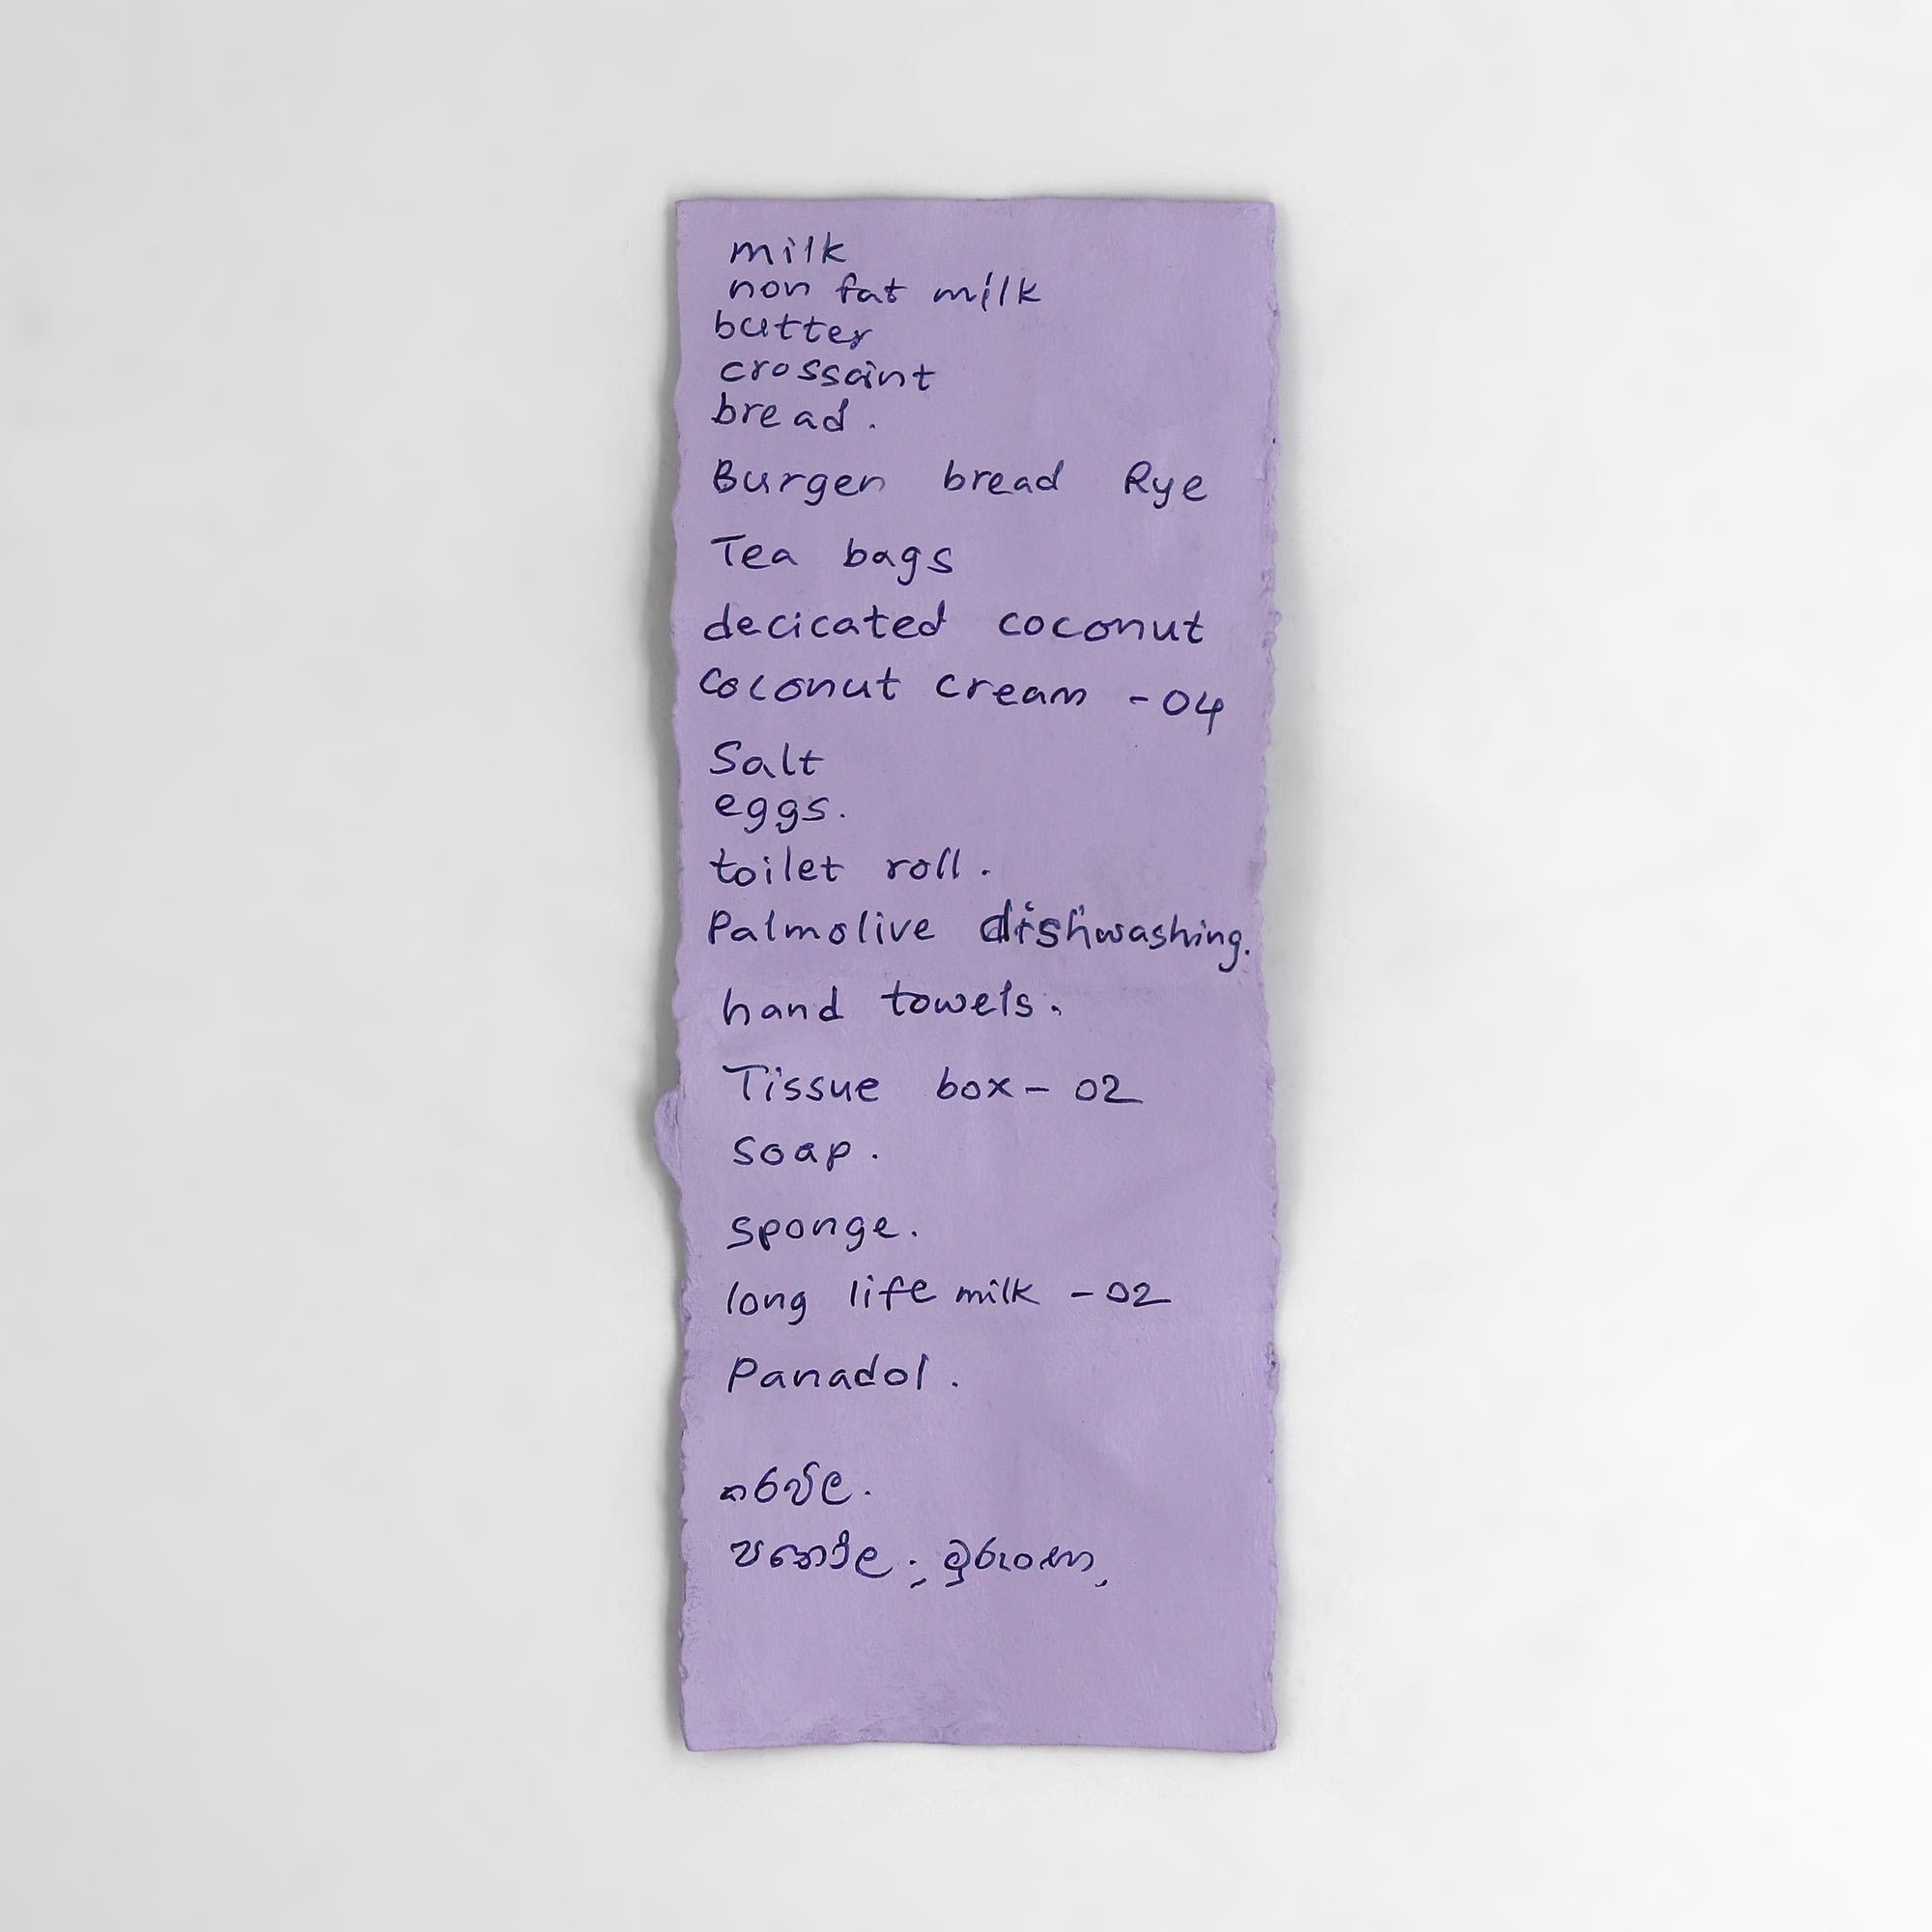 milk
non fat milk
butter
crossaint
bread.
Burgen bread Rye
Tea bags
decicated coconut
Coconut cream - 04
Salt
eggs.
toilet roll.
Palmolive dishwashing.
hand towels.
Tissue box - 02
Soap.
sponge.
long life milk - 02
Panadol.
කරවිල.
පතෝල ; මුරුංගා,